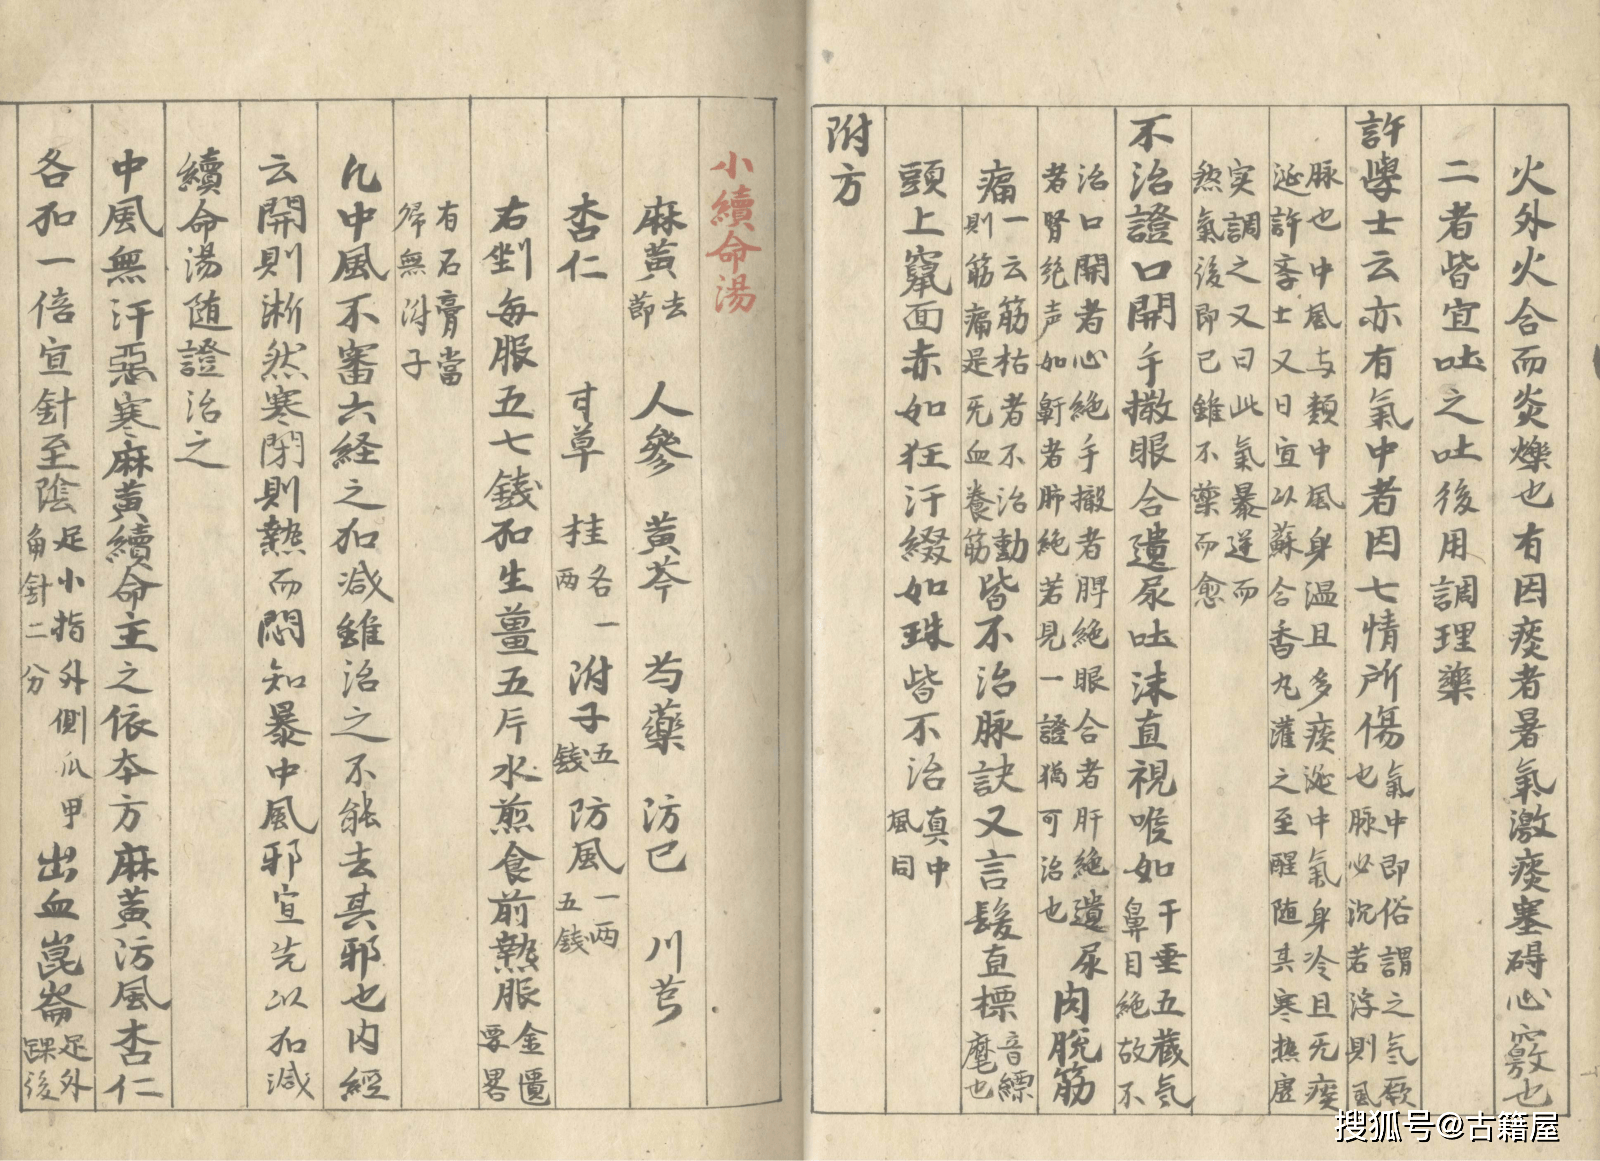 火外火合而炎爍也有因痰者暑氣激痰塞碍心竅也
二者皆宜吐之吐後用調理藥
許學士云亦有氣中者因七情所傷氣中即俗謂之气厥也脉必沉若浮則風
脉也中風与類中風身温且多痰涎中氣身冷且无痰
涎許李士又曰宜以蘇合香丸灌之至醒随其寒热虛
实調之又曰此氣暴逆而
然氣後即已雖不藥而愈
不治證口開手撒眼合遺尿吐沫直視喉如鼾睡五藏气絶故不
治口開者心絶手撒者脾絶眼合者肝絶遺尿
者腎絶声如鼾者肺絶若見一證猶可治也肉脫筋
痛一云筋枯者不治動則筋痛是无血養筋皆不治脉訣又言髮直標音縹麾也
頭上竄面赤如狂汗綴如珠皆不治真中風同
附方
小續命湯
麻黃去節 人參 黃芩 芍藥 防已 川芎
杏仁 甘草 桂各一两 附子五錢 防風一两五錢
右剉每服五七錢加生薑五片水煎食前熱服金匱要畧
有石膏當
歸無附子
凢中風不審六経之加减雖治之不能去其邪也内經
云開則淅然寒閉則熱而悶知暴中風邪宣先以加减
續命湯随證治之
中風無汗惡寒麻黃續命主之依本方麻黃汸風杏仁
各加一倍宜針至陰足小指外側爪甲角針二分出血崑崙足外踝後
搜狐号@古籍屋